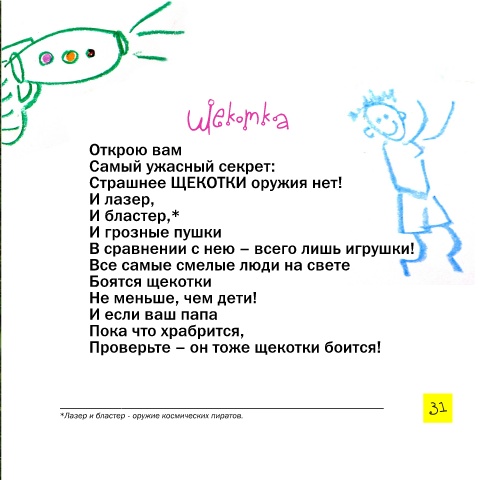 Щекотка
Открою вам
Самый ужасный секрет:
Страшнее ЩЕКОТКИ оружия нет!
И лазер,
И бластер,*
И грозные пушки
В сравнении с нею – всего лишь игрушки!
Все самые смелые люди на свете
Боятся щекотки
Не меньше, чем дети!
И если ваш папа
Пока что храбрится,
Проверьте – он тоже щекотки боится!
*Лазер и бластер - оружие космических пиратов.
31